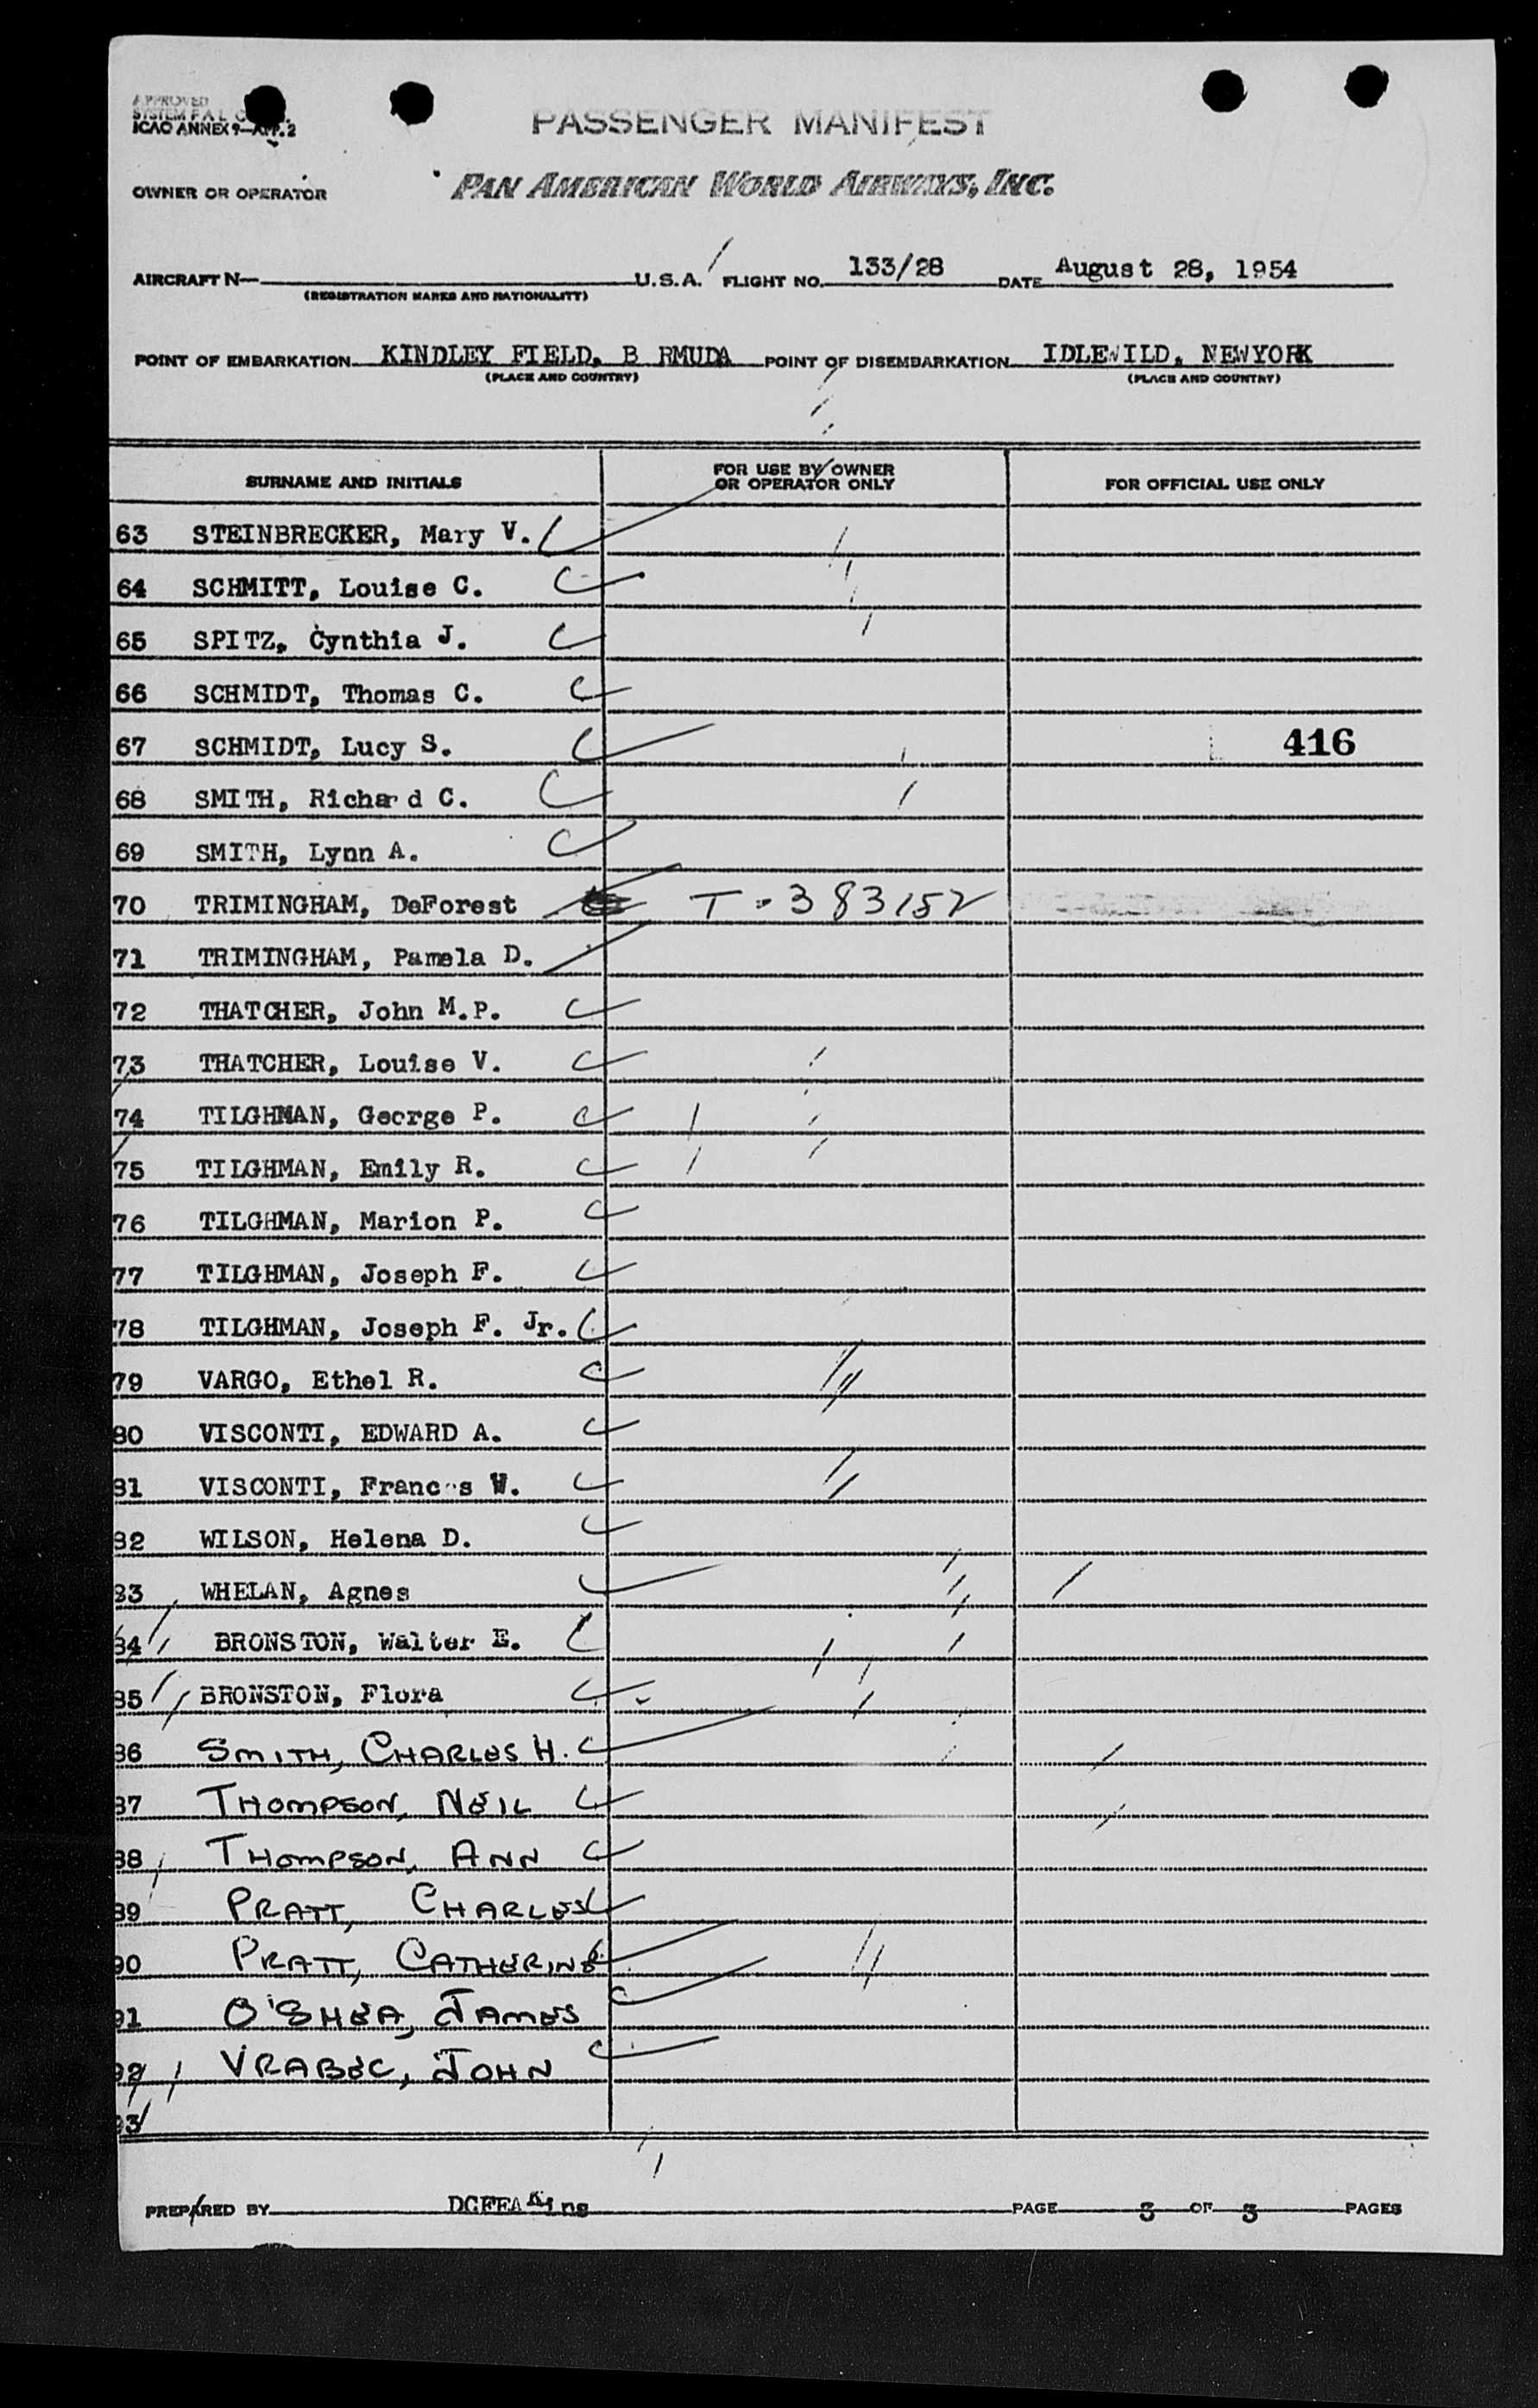 APPROVED
SYSTEM F.A.L.
ICAO ANNEX 9—APP. 2
PASSENGER MANIFEST
OWNER OR OPERATOR PAN AMERICAN WORLD AIRWAYS, INC.
AIRCRAFT N— U.S.A. FLIGHT NO. 133/28 DATE August 28, 1954
(REGISTRATION MARKS AND NATIONALITY)
POINT OF EMBARKATION KINDLEY FIELD, B RMUDA POINT OF DISEMBARKATION IDLEWILD, NEWYORK
(PLACE AND COUNTRY) (PLACE AND COUNTRY)
SURNAME AND INITIALS FOR USE BY OWNER OR OPERATOR ONLY FOR OFFICIAL USE ONLY
63 STEINBRECKER, Mary V.
64 SCHMITT, Louise C.
65 SPITZ, Cynthia J.
66 SCHMIDT, Thomas C.
67 SCHMIDT, Lucy S. 416
68 SMITH, Richard C.
69 SMITH, Lynn A.
70 TRIMINGHAM, DeForest T-383152
71 TRIMINGHAM, Pamela D.
72 THATCHER, John M.P.
73 THATCHER, Louise V.
74 TILGHMAN, George P.
75 TILGHMAN, Emily R.
76 TILGHMAN, Marion P.
77 TILGHMAN, Joseph F.
78 TILGHMAN, Joseph F. Jr.
79 VARGO, Ethel R.
80 VISCONTI, EDWARD A.
81 VISCONTI, Frances W.
82 WILSON, Helena D.
83 WHELAN, Agnes
84 BRONSTON, Walter E.
85 BRONSTON, Flora
86 SMITH, CHARLES H.
87 THOMPSON, NEIL
88 THOMPSON, ANN
89 PRATT, CHARLES
90 PRATT, CATHERINE
91 O'SHEA, JAMES
92 VRABEC, JOHN
93
PREPARED BY PAGE 3 OF 3 PAGES